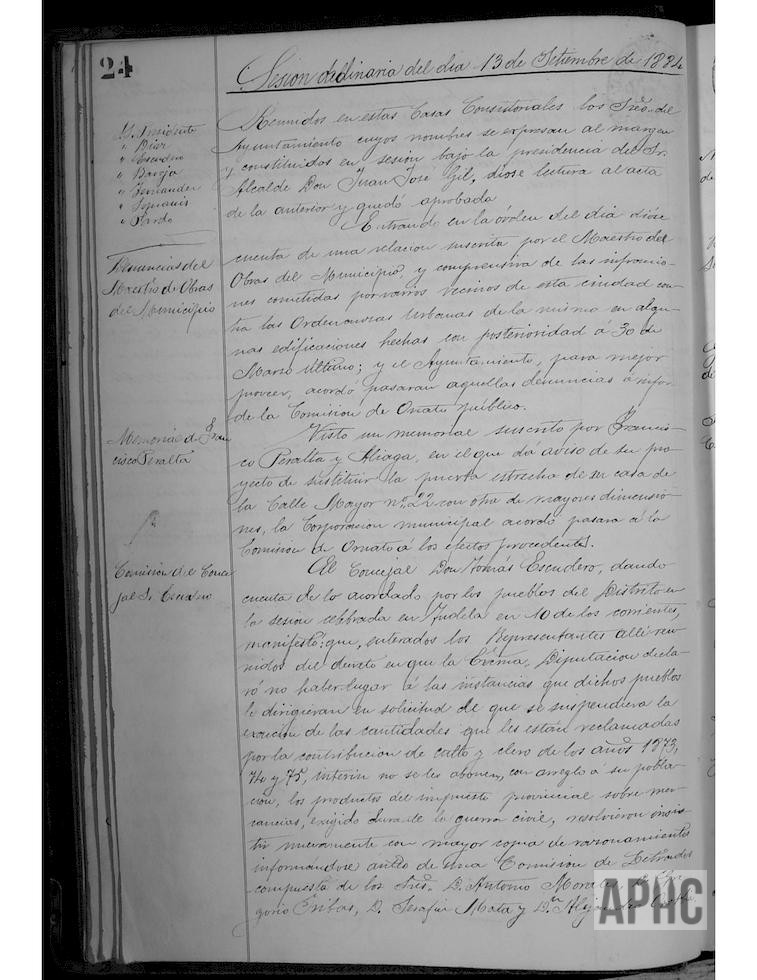 24
Sesion ordinaria del dia 13 de Setiembre de 1884
S. Presidente
" Diez
" Escudero
" Baroja
" Fernandez
" Pardo
Reunidos en estas Casas Consistoriales los Sres. del
Ayuntamiento cuyos nombres se expresan al margen
y constituidos en sesión bajo la presidencia del Sr.
Alcalde Don Juan José Gil, diose lectura al acta
de la anterior y quedó aprobada
Denuncias del
Maestro de Obras
del Municipio
Entrando en la órden del dia dióse
cuenta de una relacion suscrita por el Maestro de
Obras del Municipio, y comprensiva de las infraccio-
nes cometidas por varios vecinos de esta ciudad con-
tra las Ordenanzas Urbanas de la misma en algu-
nas edificaciones hechas con posterioridad á 30 de
Marzo último; y el Ayuntamiento, para mejor
proveer, acordó pasaran aquellas denuncias á infor.
de la Comision de Ornato público.
Memorial de Fran
cisco Peralta
Visto un memorial suscrito por Francis-
co Peralta y Aliaga, en el que dá aviso de su pro-
yecto de sustituir la puerta estrecha de su casa de
la Calle Mayor nº 22 con otra de mayores dimensio-
nes, la Corporacion municipal acordó pasara á la
Comision de Ornato á los efectos procedentes.
Comision del Conce
jal S. Escudero
El Concejal Don Tomás Escudero, dando
cuenta de lo acordado por los pueblos del Distrito en
la sesion celebrada en Tudela en 10 de los corrientes,
manifestó: que, enterados los Representantes alli reu-
nidos del decreto en que la Excma. Diputacion decla-
ró no haber lugar á las instancias que dichos pueblos
le dirigieran en solicitud de que se suspendiera la
exaccion de las cantidades que les están reclamadas
por la contribucion de culto y clero de los años 1873,
74 y 75, interin no se les abonen, con arreglo á su pobla-
cion, los productos del impuesto provincial sobre mer-
cancias, exigido durante la guerra civil, resolvieron insis-
tir nuevamente con mayor copia de razonamientos
informándose antes de una Comision de Letrados
compuesta de los Sres. D. Antonio Morales, D. Gre-
gorio Iribas, D. Serafin Mata y Dn. Alejandro
APHC